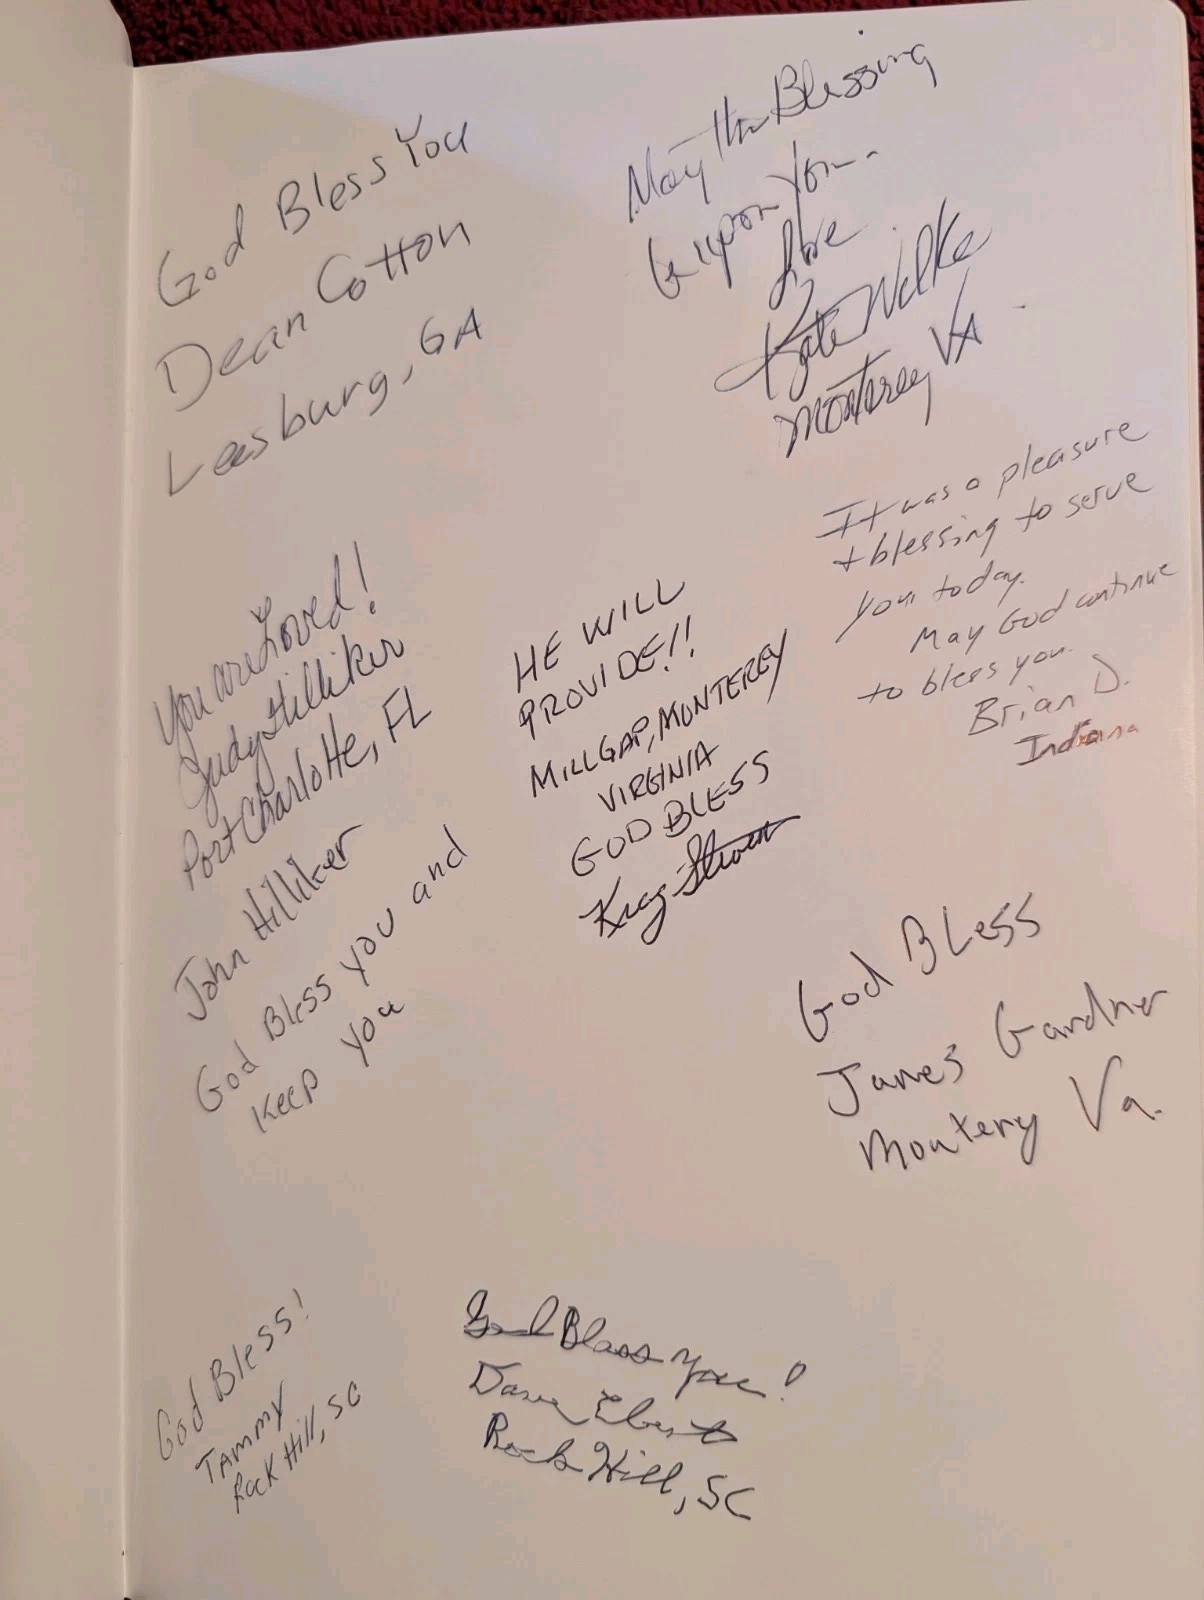 God Bless You
Dean Cotton
Leesburg, GA
May the Blessing
be upon you.
Love
Kate Wilke
Monterey VA
It was a pleasure
+ blessing to serve
you today.
May God continue
to bless you.
Brian D.
Indiana
You are Loved!
Judy Hilliker
Port Charlotte, FL
John Hilliker
God Bless you and
Keep you
HE WILL
PROVIDE!!
MILLGAP, MONTEREY
VIRGINIA
GOD BLESS
God Bless
James Gardner
Montery Va.
God Bless!
TAMMY
Rock Hill, SC
God Bless You!
Rock Hill, SC